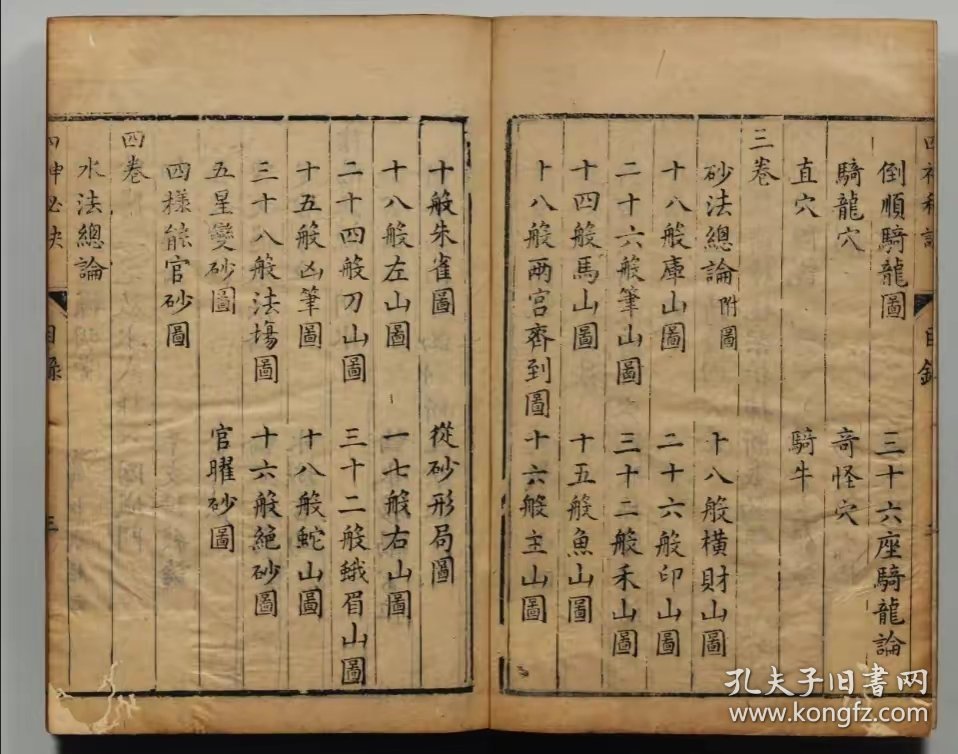 目錄
倒順騎龍圖 三十六座騎龍論
騎龍穴 竒怪穴
直穴 騎牛
三卷
砂法總論附圖 十八般橫財山圖
十八般庫山圖 二十六般印山圖
二十六般筆山圖 三十二般禾山圖
十四般馬山圖 十五般魚山圖
十八般兩宮齊到圖 十六般主山圖
十般朱雀圖 從砂形局圖
十八般左山圖 一七般右山圖
二十四般刀山圖 三十二般蛾眉山圖
十五般凶筆圖 十八般蛇山圖
三十八般法塲圖 十六般絕砂圖
五星變砂圖 官曜砂圖
四樣能官砂圖
四卷
水法總論
目錄 三
孔夫子旧书网
www.kongfz.com